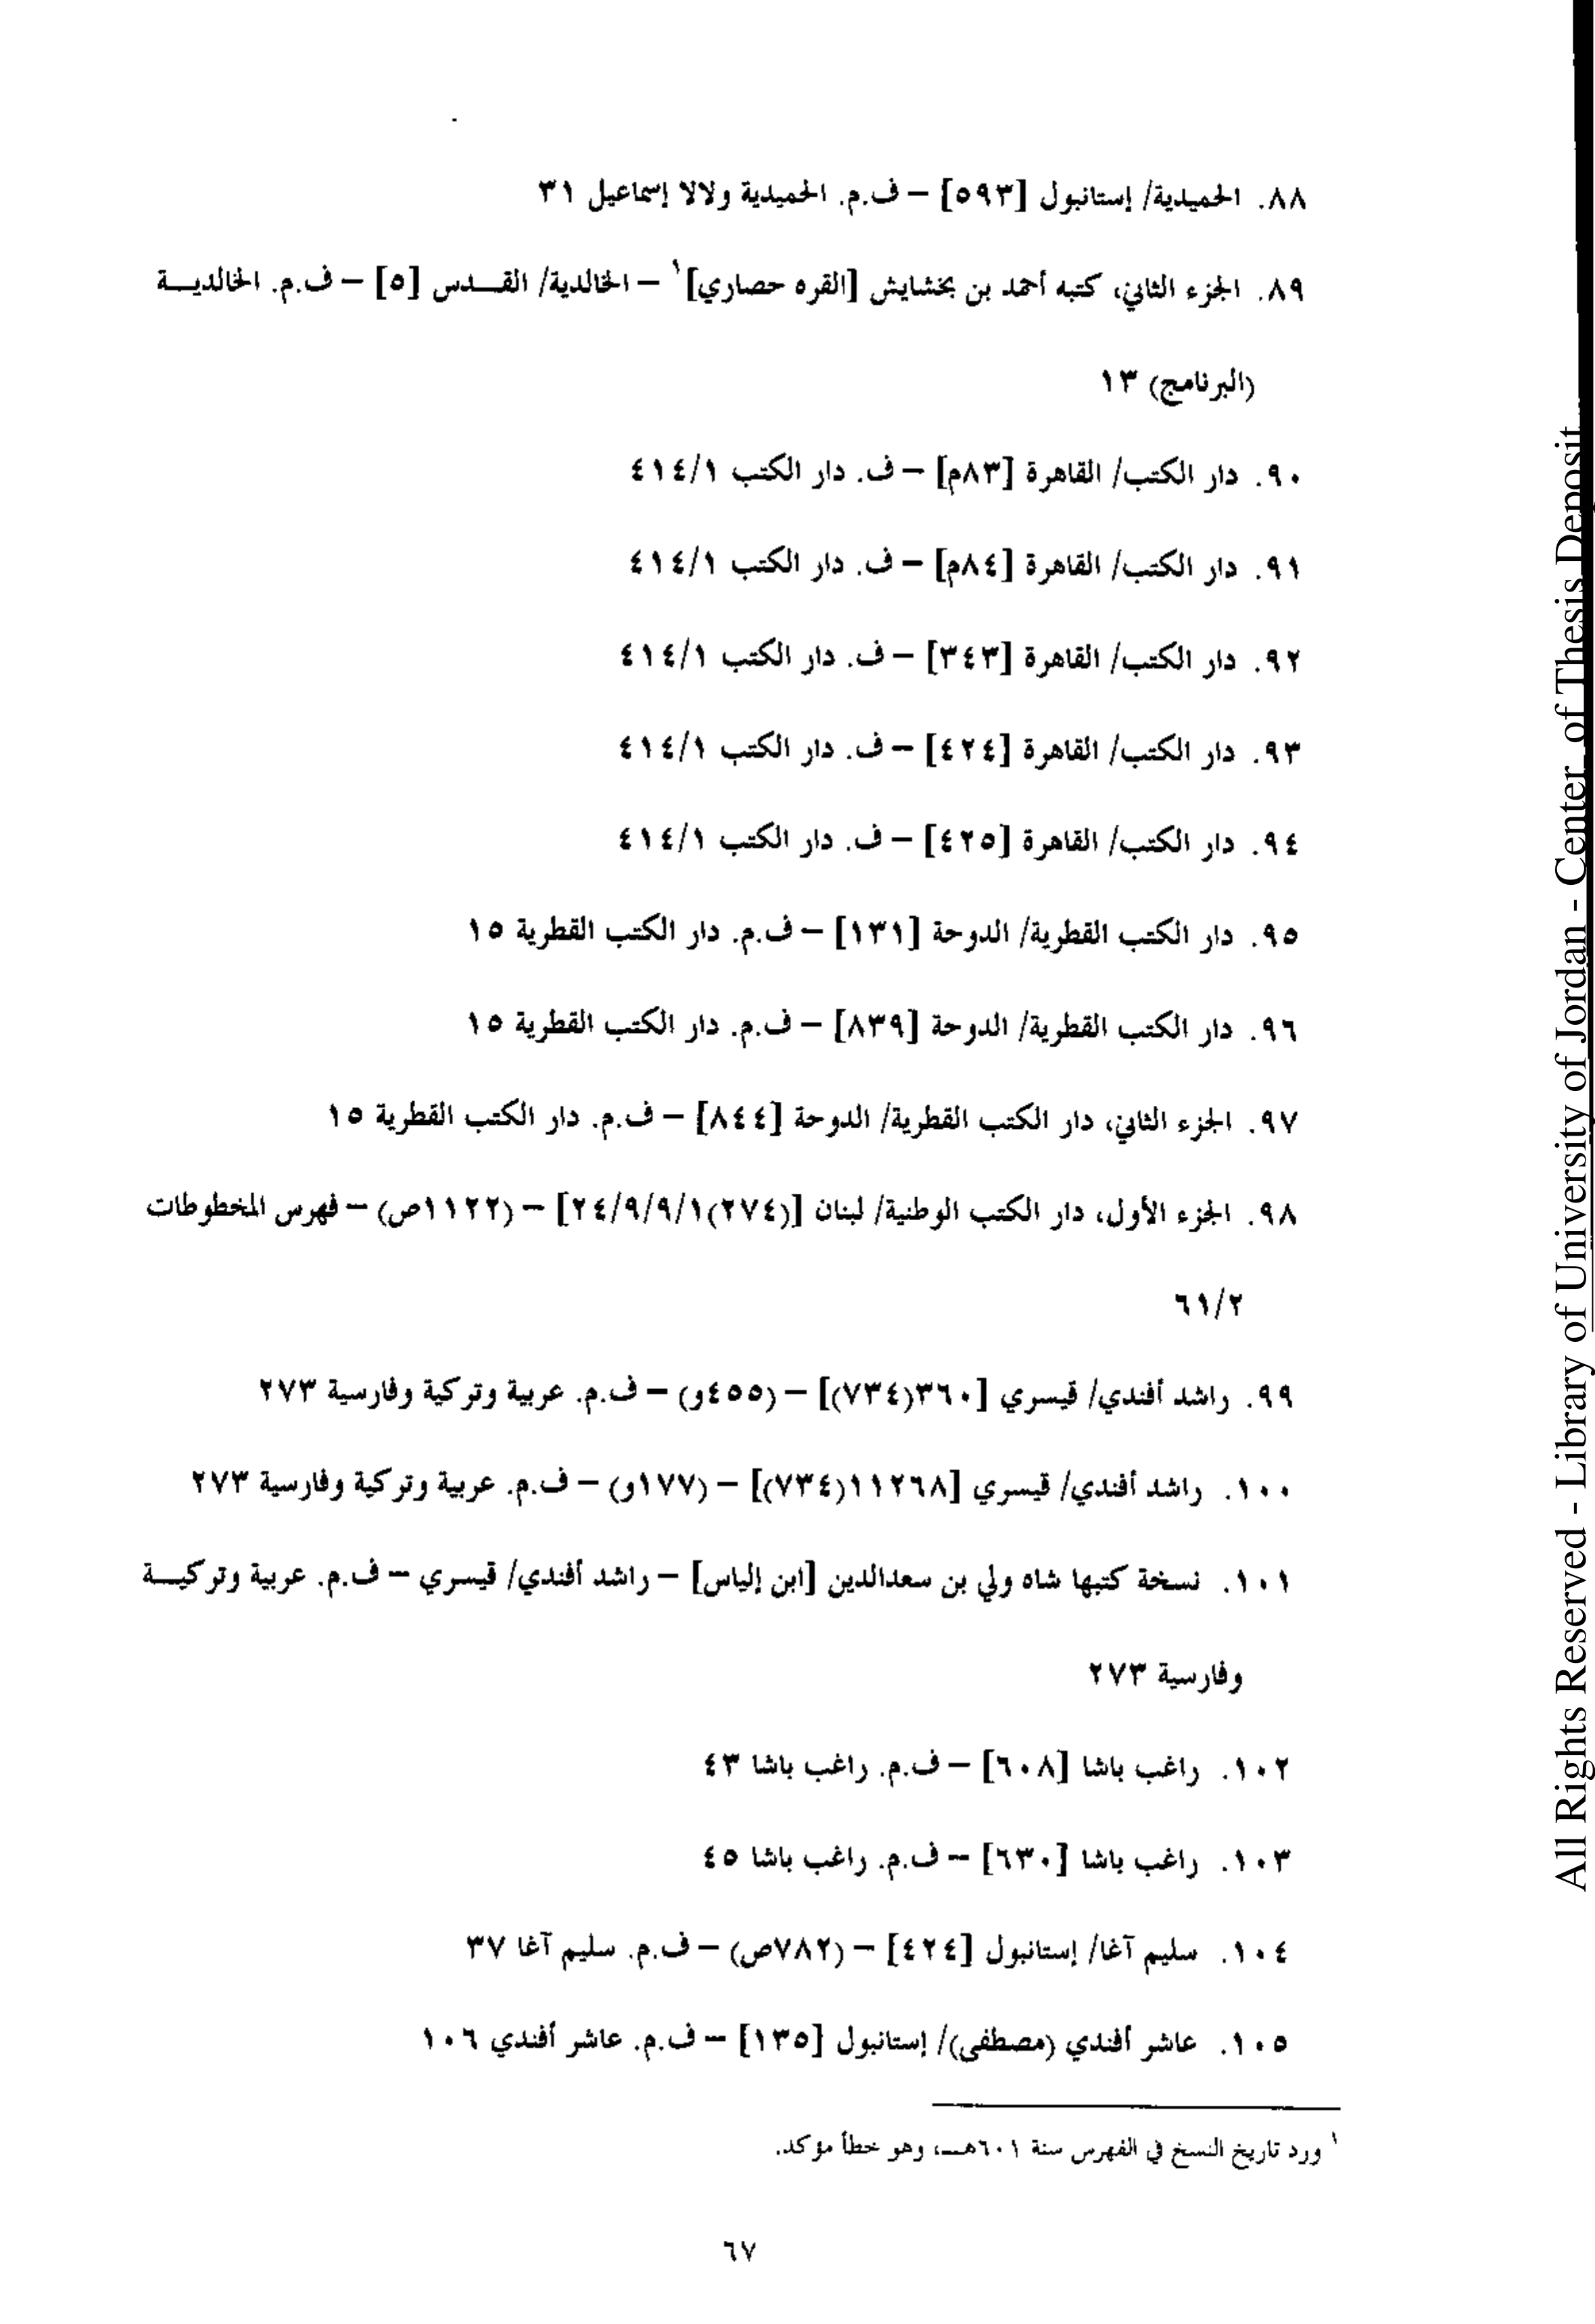 ٨٨. الحميدية/ إستانبول [٥٩٣] – ف.م. الحميدية ولالا إسماعيل ٣١
٨٩. الجزء الثاني، كتبه أحمد بن بخشايش [القره حصاري]١ – الخالدية/ القـــدس [٥] – ف.م. الخالديـــة
(البرنامج) ١٣
٩٠. دار الكتب/ القاهرة [٨٣م] – ف. دار الكتب ٤١٤/١
٩١. دار الكتب/ القاهرة [٨٤م] – ف. دار الكتب ٤١٤/١
٩٢. دار الكتب/ القاهرة [٣٤٣] – ف. دار الكتب ٤١٤/١
٩٣. دار الكتب/ القاهرة [٤٢٤] – ف. دار الكتب ٤١٤/١
٩٤. دار الكتب/ القاهرة [٤٢٥] – ف. دار الكتب ٤١٤/١
٩٥. دار الكتب القطرية/ الدوحة [١٣١] – ف.م. دار الكتب القطرية ١٥
٩٦. دار الكتب القطرية/ الدوحة [٨٣٩] – ف.م. دار الكتب القطرية ١٥
٩٧. الجزء الثاني، دار الكتب القطرية/ الدوحة [٨٤٤] – ف.م. دار الكتب القطرية ١٥
٩٨. الجزء الأول، دار الكتب الوطنية/ لبنان [(٢٧٤)٢٤/٩/٩/١] – (١١٢٢ص) – فهرس المخطوطات
٦١/٢
٩٩. راشد أفندي/ قيسري [٣٦٠(٧٣٤)] – (٤٥٥و) – ف.م. عربية وتركية وفارسية ٢٧٣
١٠٠. راشد أفندي/ قيسري [١١٢٦٨(٧٣٤)] – (١٧٧و) – ف.م. عربية وتركية وفارسية ٢٧٣
١٠١. نسخة كتبها شاه ولي بن سعدالدين [ابن إلياس] – راشد أفندي/ قيسري – ف.م. عربية وتركيـــة
وفارسية ٢٧٣
١٠٢. راغب باشا [٦٠٨] – ف.م. راغب باشا ٤٣
١٠٣. راغب باشا [٦٣٠] – ف.م. راغب باشا ٤٥
١٠٤. سليم آغا/ إستانبول [٤٢٤] – (٧٨٢ص) – ف.م. سليم آغا ٣٧
١٠٥. عاشر أفندي (مصطفى)/ إستانبول [١٣٥] – ف.م. عاشر أفندي ١٠٦
١ ورد تاريخ النسخ في الفهرس سنة ٦٠١هـــ، وهو خطأ مؤكد.
٦٧
All Rights Reserved - Library of University of Jordan - Center of Thesis Deposit